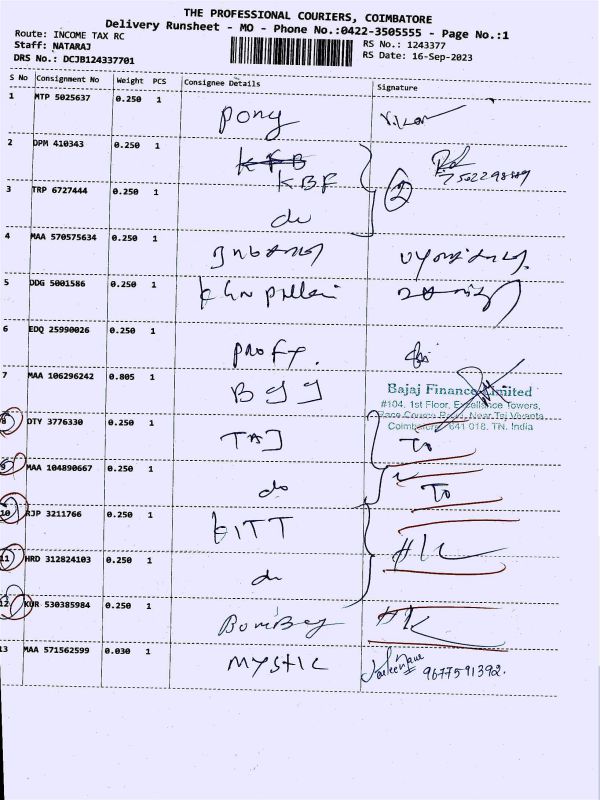 THE PROFESSIONAL COURIERS, COIMBATORE
Delivery Runsheet - MO - Phone No.:0422-3505555 - Page No.:1
Route: INCOME TAX RC
Staff: NATARAJ
DRS No.: DCJB124337701
RS No.: 1243377
RS Date: 16-Sep-2023
S No Consignment No Weight PCS Consignee Details Signature
1 MTP 5025637 0.250 1 Pony
2 DPM 410343 0.250 1 KBF
3 TRP 6727444 0.250 1 do 2
4 MAA 570575634 0.250 1
5 DDG 5001586 0.250 1
6 EDQ 25990026 0.250 1 Profy.
7 MAA 106296242 0.805 1 BJJ
Bajaj Finance Limited
#104, 1st Floor, Excellance Towers,
Race Course Road, Near Taj Vivanta,
Coimbatore - 641 018. TN. India
8 DTY 3776330 0.250 1 TAJ To
9 MAA 104890667 0.250 1 do To
10 RJP 3211766 0.250 1 KITT
11 HRD 312824103 0.250 1 do
12 KUR 530385984 0.250 1 Bombay
13 MAA 571562599 0.030 1 Mystic 9677591392.